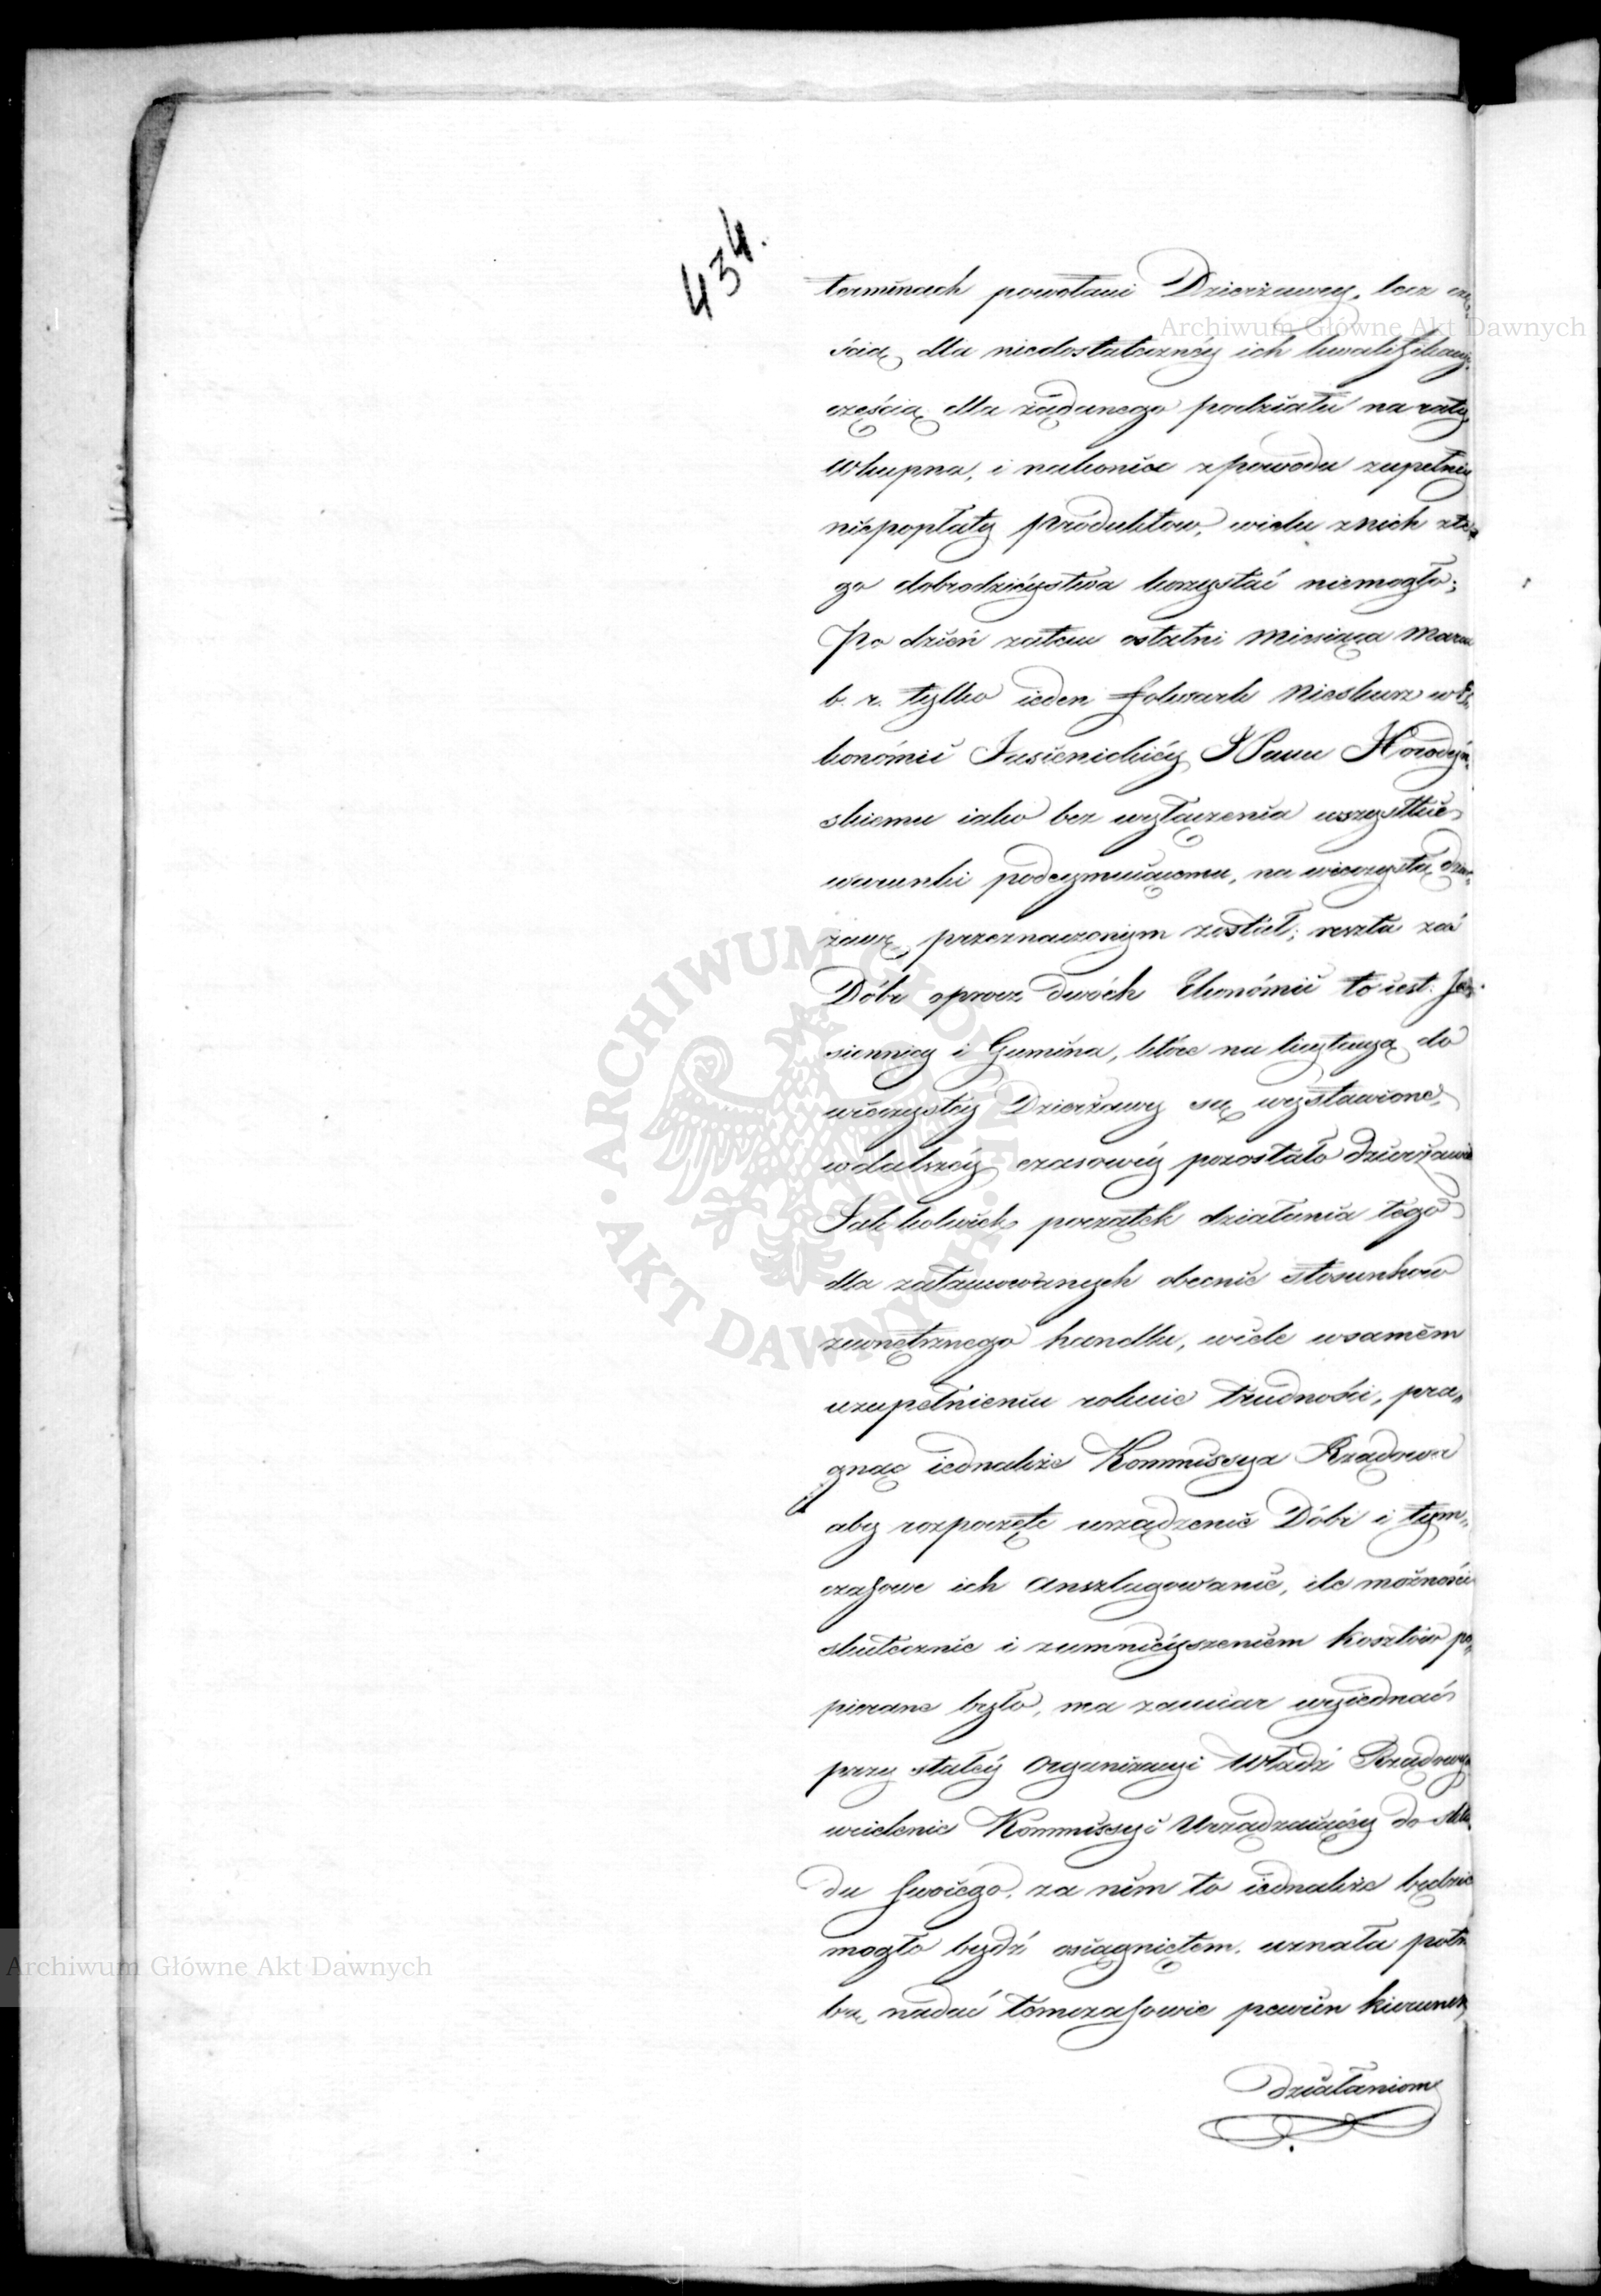 434.
terminach powołani Dzierżawcy, lecz czę„
ścią dla niedostateczney ich kwalifikacyi
częścią dla żądanego podziału na raty
Wkupna, i nakoniec z powodu zupełney
niepopłaty produktow, wielu z nich z te„
go dobrodzieystwa korzystać niemogło;
Po dzień zatem ostatni Miesiąca Marca
b. r. tylko ieden folwark Nieskurz w E„
konómii Jasienickiéy JPanu Horodyń„
skiemu iako bez wyłączenia wszystkie
warunki podeymuiącemu, na wieczystą dzier„
żawę przeznaczonym został; reszta zaś
Dóbr oprocz dwóch Ekonómii to iest: Ja„
siennicy i Gumina, które na licytacyą do
wieczystéy Dzierżawy są wystawione,
w dalszéy czasowéy pozostało dzierżawie
Jakkolwiek początek działania tego
dla zatamowanych obecnie stosunków
zewnętrznego handlu, wiele w samém
uzupełnieniu rokuie trudności, pra„
gnąc iednakże Kommissya Rządowa
aby rozpoczęte urządzenie Dóbr i tym„
czasowe ich anszlagowanie, ile możności
skutecznie i zumnieyszeniem kosztów po„
pierane było, ma zamiar wyiednać
przy stałéy Organizacyi Władz Rządowych
wcielenie Kommissyi Urządzaiącéy do skła„
du swoiego, za nim to iednakże będzie
mogło bydź osiągniętem, uznała potrze
bę, nadać tómczasowie pewien kierunek
działaniom
Archiwum Główne Akt Dawnych
ARCHIWUM GŁÓWNE · AKT DAWNYCH ·
Archiwum Główne Akt Dawnych